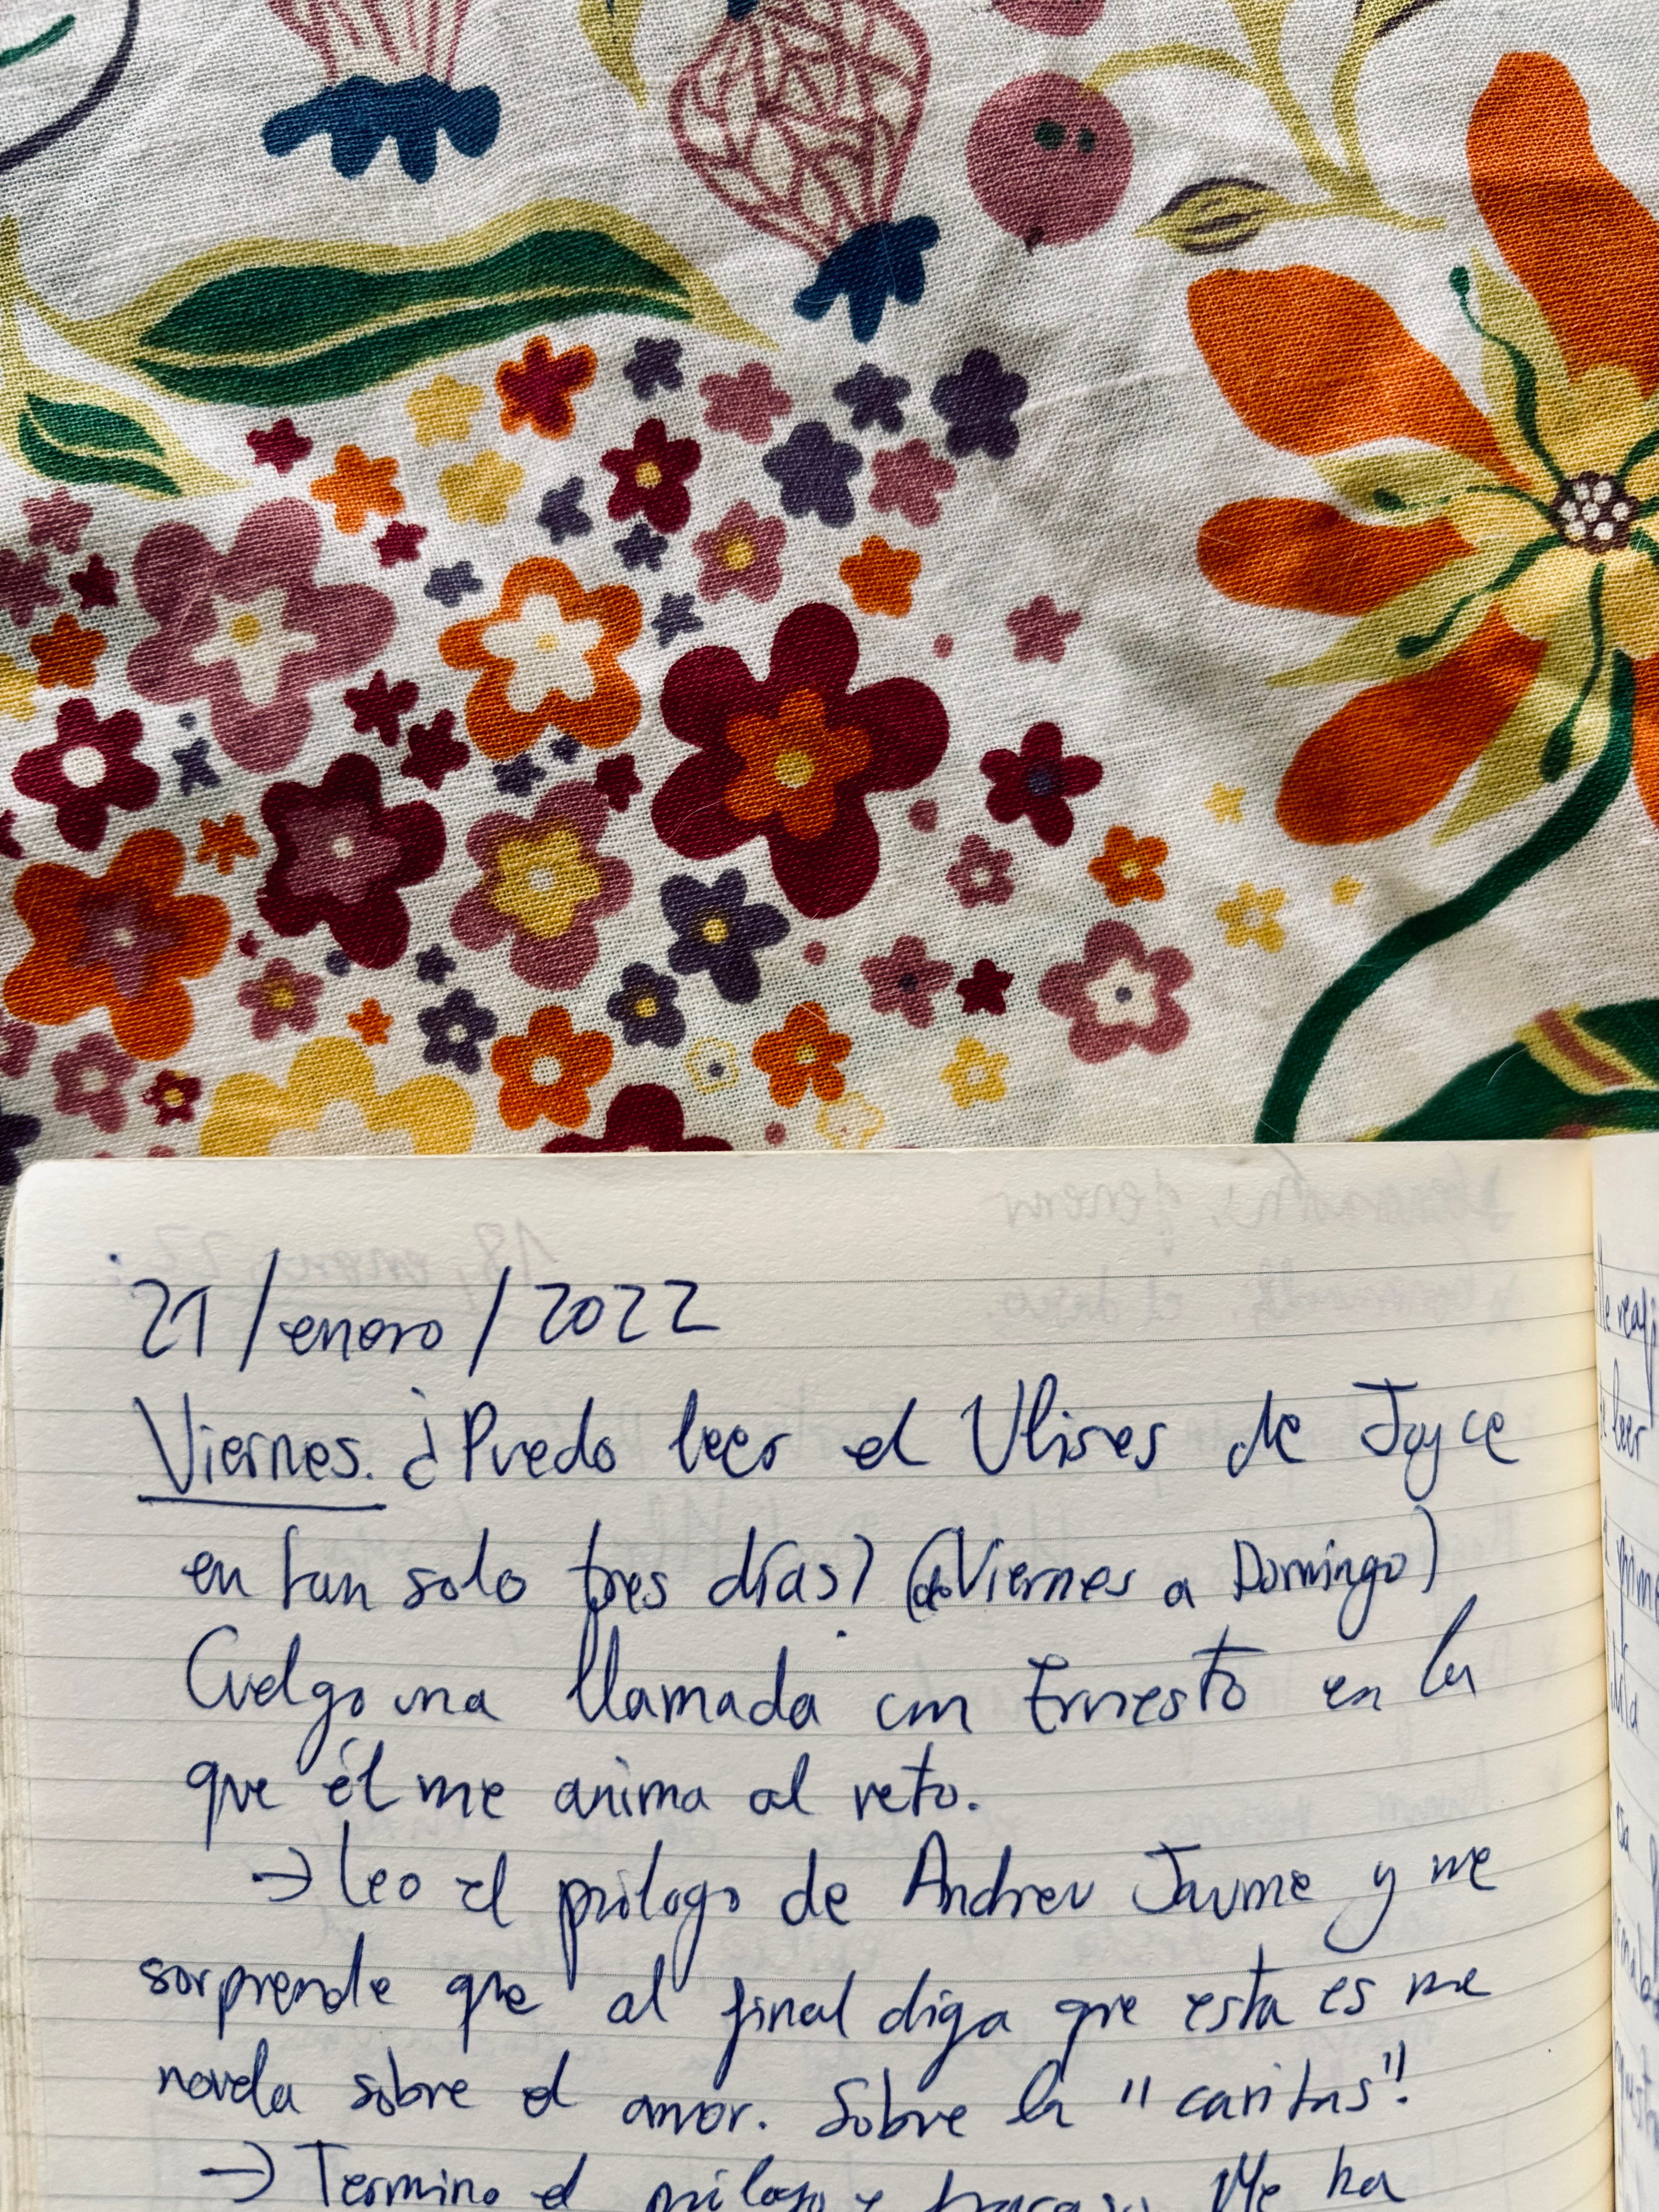 21/enero/2022
Viernes. ¿Puedo leer el Ulises de Joyce
en tan solo tres días? (de Viernes a Domingo)
Cuelgo una llamada con Ernesto en la
que él me anima al reto.
→ Leo el prólogo de Andreu Jaume y me
sorprende que al final diga que esta es una
novela sobre el amor. Sobre la "caritas".
→ Termino el prólogo y Me ha
leer